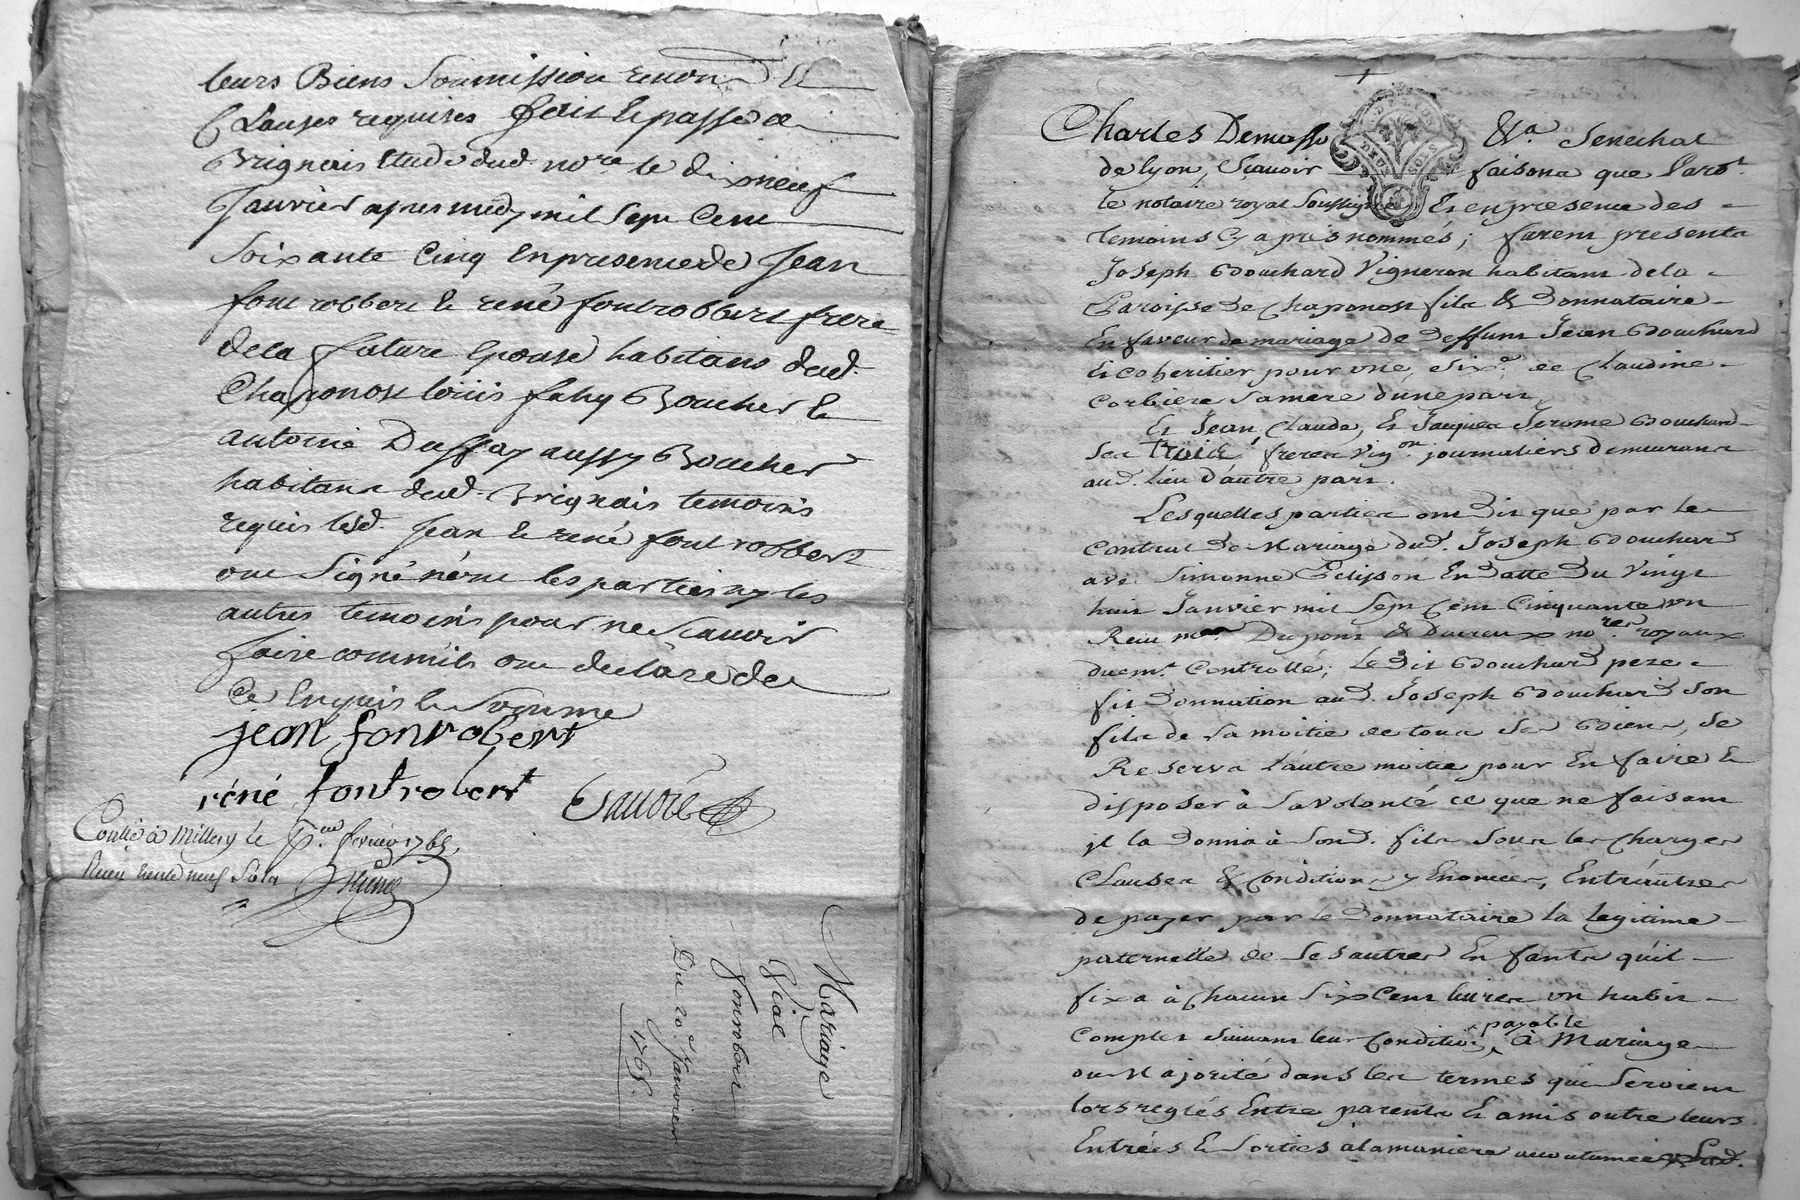 leurs Biens Soumission renon^on Et
Clauses requises fait et passé a
Brignais Etude dud. no^re le dixneuf
Janvier apres midy mil Sept Cent
Soixante Cinq En presence de Jean
fontrobbert et rené fontrobbert frere
de la future Epouse habitans dud.
Chaponost loüis fahy Boucher et
antoine Duffay aussy Boucher
habitans dud. Brignais temoins
requis lesd. Jean et rené fontrobbert
ont Signé non les parties ny les
autres temoins pour ne Scavoir
faire comm'ils ont declaré de
Ce Enquis et Sommé
jean fonrobert
réné fontrobert
Con^llé à Millery le fevrier 1765,
Reçu trente neuf Sols
Mariage
Vial
Fonrobert
Du 20^e Janvier
1765.
Charles Demasso &^a. Senechal
de Lyon, Scavoir faisons que Pard^t.
le notaire royal Soussigné Et en presence des
temoins Cy apres nommés; furent presents
Joseph Bouchard Vigneron habitant de la
Paroisse de Chaponost fils & Donnataire
En faveur de mariage de Deffunt Jean Bouchard
Et coheritier pour une, Six^e. de Claudine
Corbiere Sa mere d'une part,
Et Jean Claude, Et Jacques Jerome Bouchard
Ses trois freres Vig^on. journaliers demeurans
aud. lieu d'autre part.
Lesquelles parties ont dit que par le
Contrat de Mariage dud. Joseph Bouchard
avec Simonne Pelisson En datte du Vingt
huit Janvier mil Sept Cent Cinquante un
Reçu m^es Dupont & no^res royaux
duem^t. Controllé; Le dit Bouchard pere
fit Donnation aud. Joseph Bouchard Son
fils de la moitié de tous Ses Biens, se
Reserva l'autre moitié pour En faire et
disposer à Sa volonté ce que ne faisant
jl la donna à Sond. fils Sous les Charges
Clauses & Conditions y Enoncées, Entr'autres
de payer par le Donnataire la legitime
paternelle de Ses autres Enfants qu'il
fixa à Chacun Six Cent livres un habit
Complet Suivant leur Condition, payable à Mariage
ou Majorité dans les termes qui Seroient
lors reglés Entre parents Et amis outre leurs
Entrées Et Sorties à la maniere accoutumée